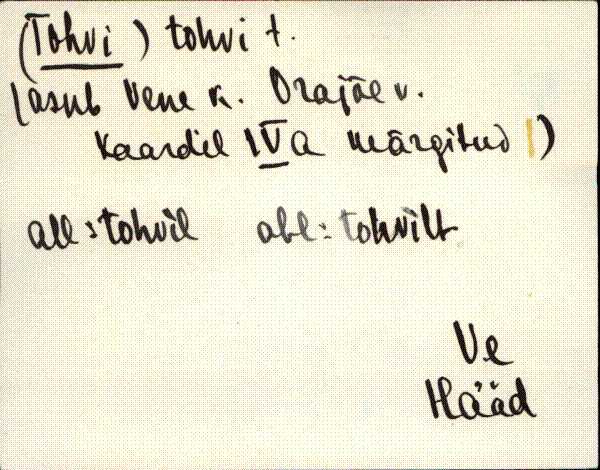 (Tohvi) tohvi t.
(asub Vene k. Orajõe v.
kaardil IVa märgitud)
all: tohvil abl: tohvilt
Ve
Hääd